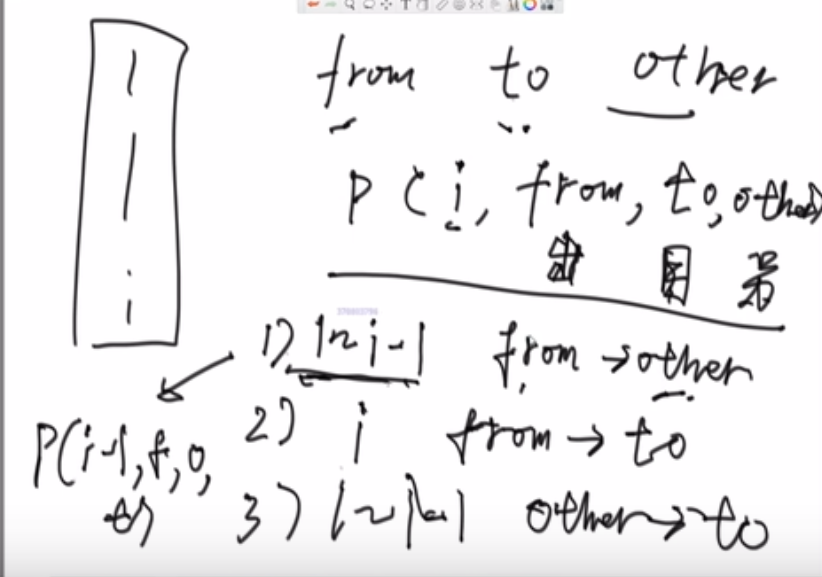 from to other
P(i, from, to, other)
出 目 另
1) 1~i-1 from → other
2) i from → to
3) 1~i-1 other → to
P(i-1, f, o, t)
1
i